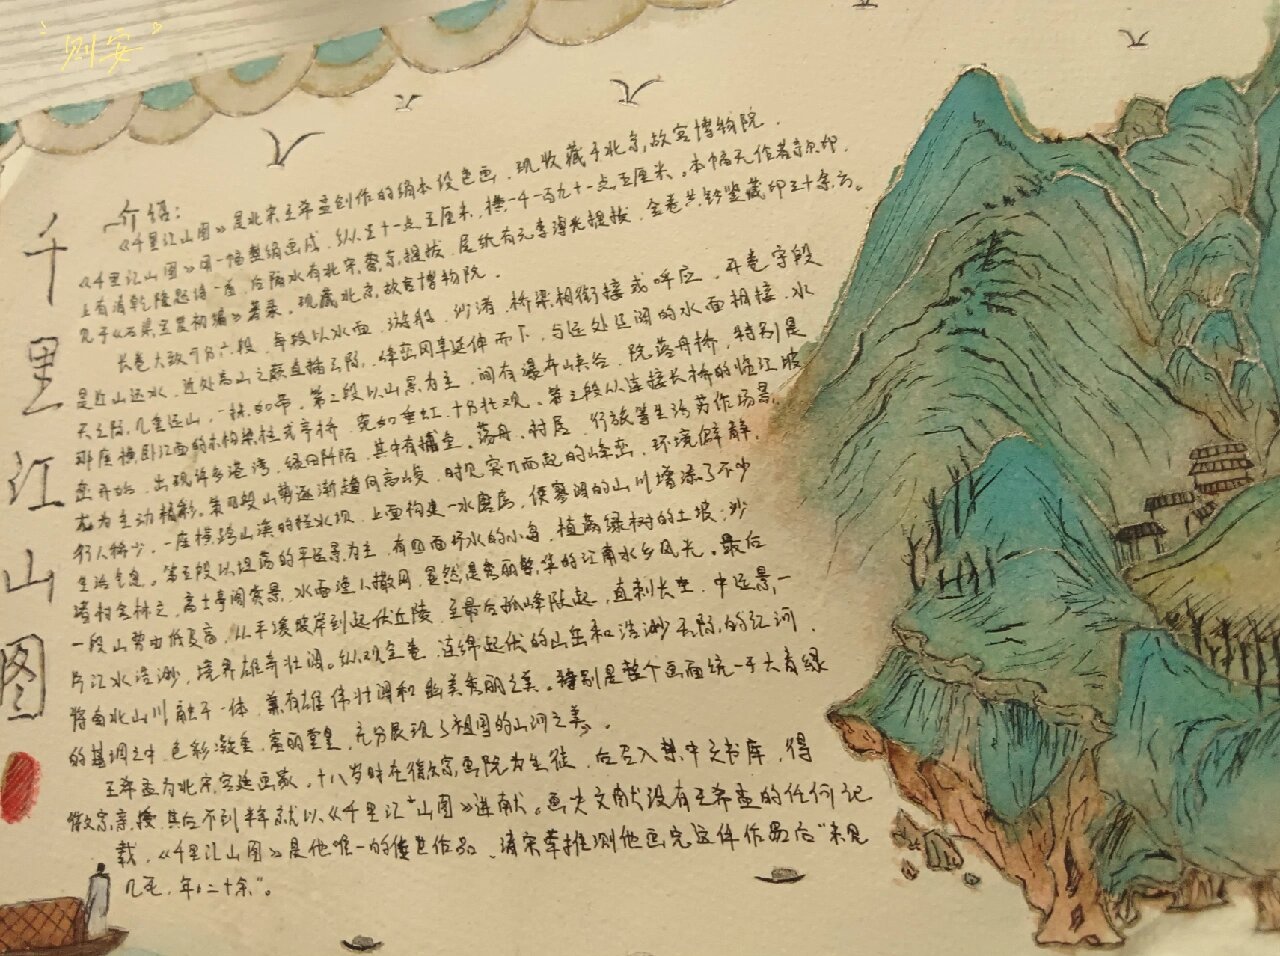 “则安”
千里江山图
介绍：
《千里江山图》是北宋王希孟创作的绢本设色画，现收藏于北京故宫博物院．
《千里江山图》用一幅整绢画成，纵五十一点五厘米，横一千一百九十一点五厘米。本幅无作者款印，
上有清乾隆题诗一首，后隔水有北宋蔡京题拔，尾纸有元李溥光题拔，全卷共钤鉴藏印三十余方。
见于《石渠宝笈初编》著录，现藏北京故宫博物院．
长卷大致可分六段，每段以水面、游船、沙渚、桥梁相衔接或呼应．开卷字段
是近山远水，近处高山之巅直插云际，峰峦冈阜延伸而下，与远处辽阔的水面相接，水
天之际，几重远山，一抹如带。第二段以山景为主，间有瀑布山谷，院落舟桥，特别是
那座横卧江面的木构梁柱式亭桥，宛如垂虹，十分壮观。第三段从连接长桥的临江坡
峦开始，出现许多港湾，绿田阡陌，其中有捕鱼、荡舟、村居、行旅等生活劳作场景，
尤为生动精彩。第四段山势逐渐趋向高峻，时见突兀而起的峰峦，环境僻静，
行人稀少，一座横跨山溪的栏水坝，上面构建一水磨房，使寥阔的山川增添了不少
生活气息。第五段以坦荡的平远景为主，有四面环水的小岛，植满绿树的土坡；沙
渚村舍林立，高士亭阁赏景，水面渔人撒网，显然是秀丽繁华的江南水乡风光。最后
一段山势由低复高，从平溪坡岸到起伏丘陵，至最后孤峰陡起，直刺长空．中远景一
片江水浩渺，境界雄奇壮阔。纵观全卷，连绵起伏的山岳和浩渺无际的江河．
将南北山川融于一体，兼有雄伟壮阔和幽美秀丽之美。特别是整个画面统一于大青绿
的基调之中，色彩激垒，富丽堂皇，充分展现了祖国的山河之美。
王希孟为北宋宫廷画家，十八岁时在徽宗画院为生徒，后召入禁中文书库，得
徽宗亲授，其后不到半年就以《千里江山图》进献。画史文献没有王希孟的任何记
载，《千里江山图》是他唯一的传世作品，清宋荦推测他画完这件作品后“未见
几死，年二十余”。